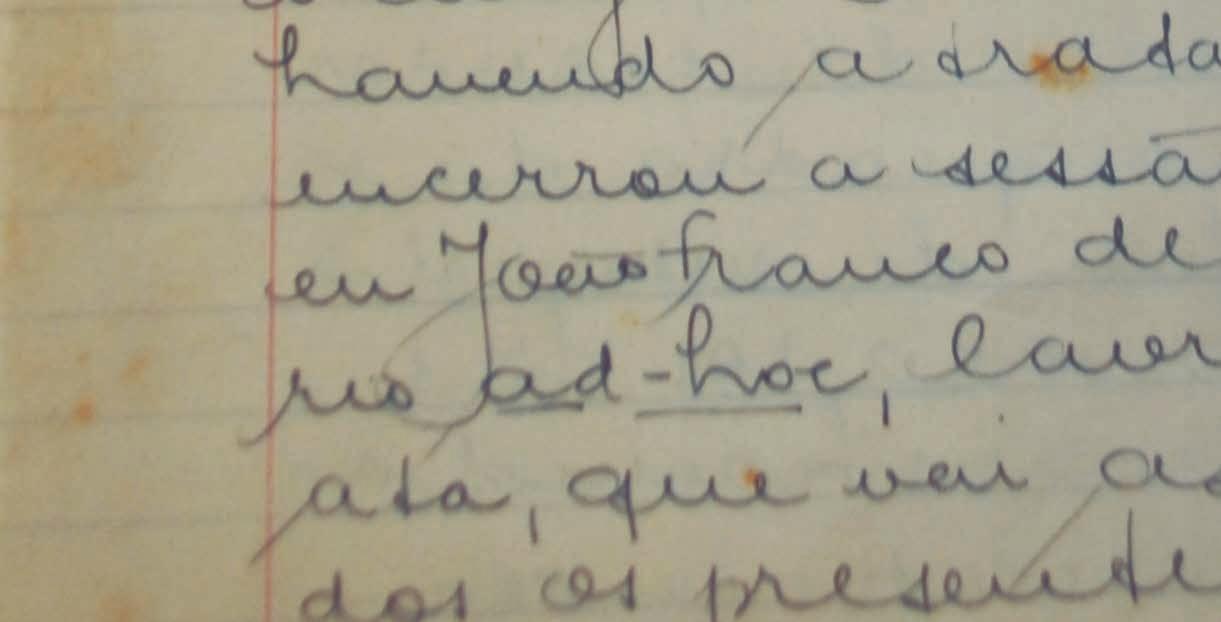 havendo a trata
encerrou a sessã
eu João franco de
rio ad-hoc, lavr
ata, que vai as
dos os presente